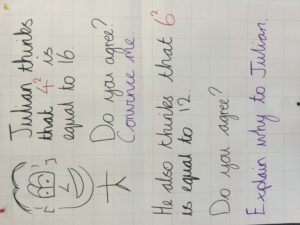 Julian thinks
that 4² is
equal to 16.
Do you agree?
Convince me.
He also thinks that 6²
is equal to 12.
Do you agree?
Explain why to Julian.